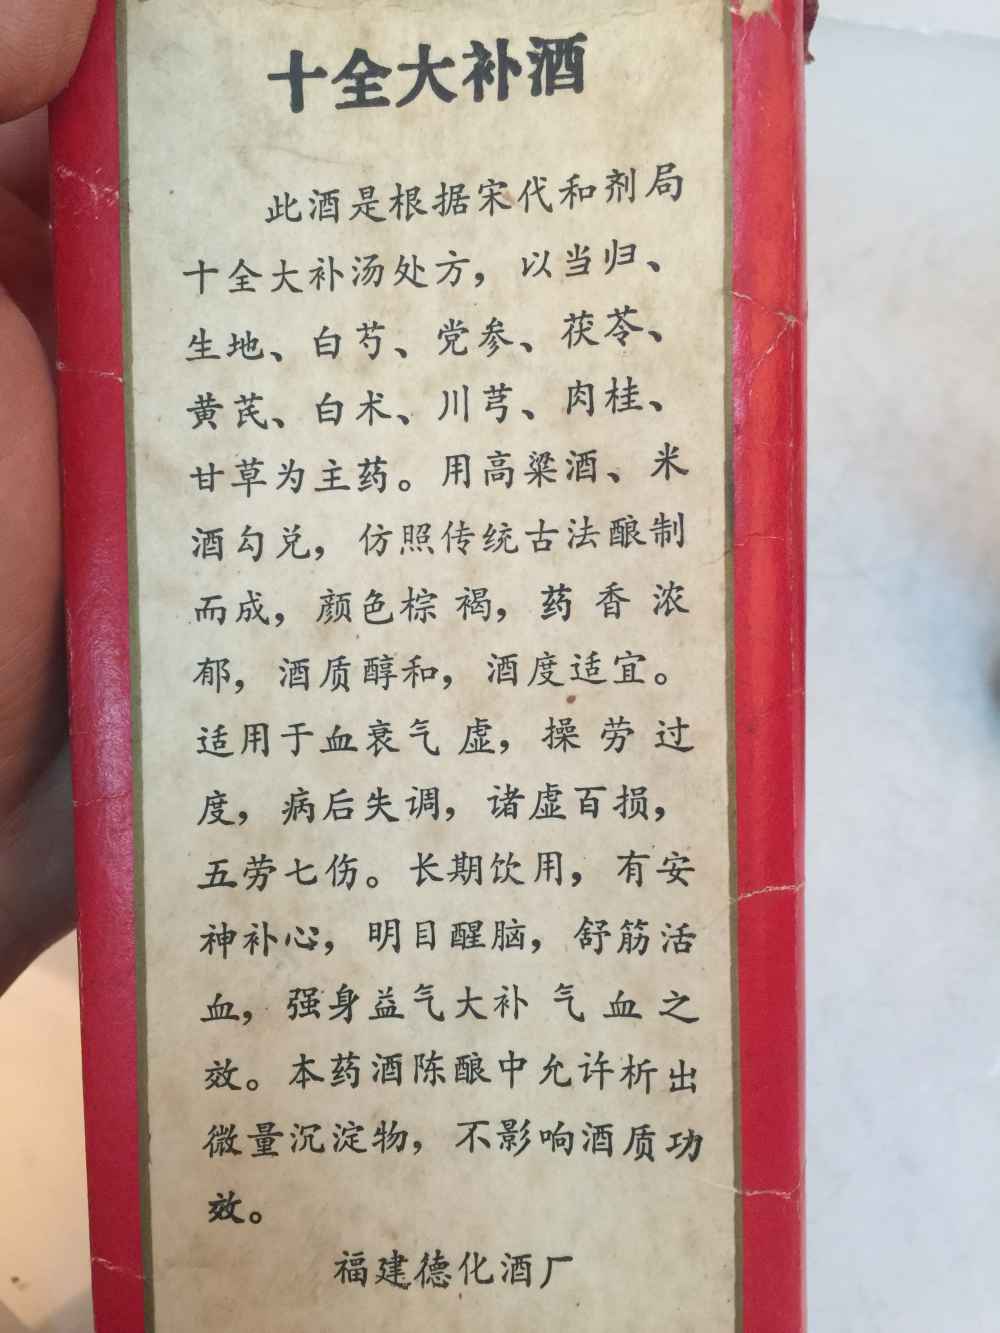 十全大补酒
此酒是根据宋代和剂局
十全大补汤处方，以当归、
生地、白芍、党参、茯苓、
黄芪、白术、川芎、肉桂、
甘草为主药。用高粱酒、米
酒勾兑，仿照传统古法酿制
而成，颜色棕褐，药香浓
郁，酒质醇和，酒度适宜。
适用于血衰气虚，操劳过
度，病后失调，诸虚百损，
五劳七伤。长期饮用，有安
神补心，明目醒脑，舒筋活
血，强身益气大补气血之
效。本药酒陈酿中允许析出
微量沉淀物，不影响酒质功
效。
福建德化酒厂